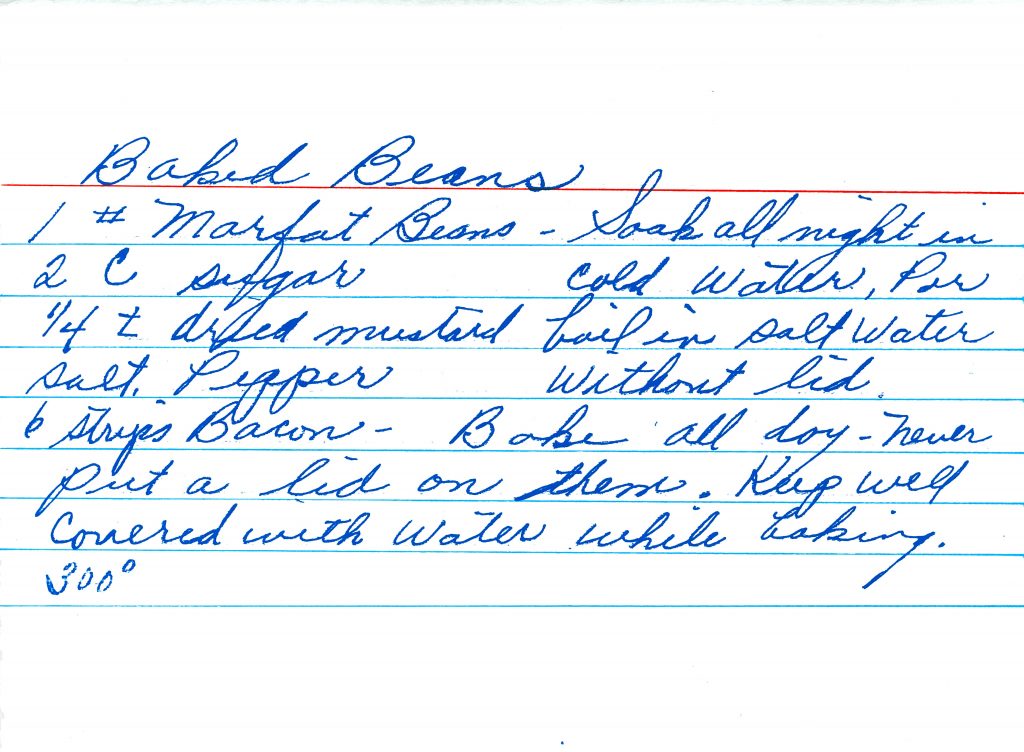 Baked Beans
1 # Marfat Beans - Soak all night in
2 C sugar cold water, Par
1/4 t dried mustard boil in salt water
salt, Pepper without lid.
6 strips Bacon - Bake all day - never
put a lid on them. Keep well
covered with water while baking.
300°